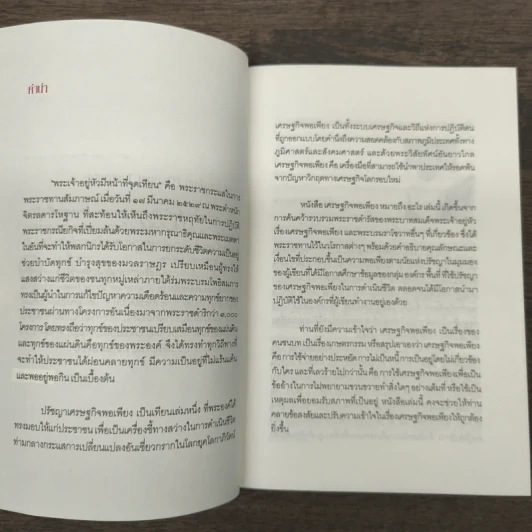 คำนำ
"พระเจ้าอยู่หัวมีหน้าที่จุดเทียน" คือ พระราชกระแสในการ
พระราชทานสัมภาษณ์ เมื่อวันที่ ๑๗ มีนาคม ๒๕๒๗ ณ พระตำหนัก
จิตรลดารโหฐาน ที่สะท้อนให้เห็นถึงพระราชหฤทัยในการปฏิบัติ
พระราชกรณียกิจที่เปี่ยมล้นด้วยพระมหากรุณาธิคุณและพระเมตตา
ในอันที่จะทำให้พสกนิกรได้รับโอกาสในการยกระดับชีวิตความเป็นอยู่
ช่วยบำบัดทุกข์ บำรุงสุขของมวลราษฎร เปรียบเหมือนผู้ทรงให้
แสงสว่างแก่ชีวิตของชนทุกหมู่เหล่าภายใต้ร่มพระบรมโพธิสมภาร
ทรงเป็นผู้นำในการแก้ไขปัญหาความเดือดร้อนและความทุกข์ยากของ
ประชาชนผ่านทางโครงการอันเนื่องมาจากพระราชดำริกว่า ๓,๐๐๐
โครงการ โดยทรงถือว่าทุกข์ของประชาชนเปรียบเสมือนทุกข์ของแผ่นดิน
และทุกข์ของแผ่นดินคือทุกข์ของพระองค์ จึงได้ทรงทำทุกวิถีทางที่
จะทำให้ประชาชนได้ผ่อนคลายทุกข์ มีความเป็นอยู่ที่ไม่แร้นแค้น
และพออยู่พอกิน เป็นเบื้องต้น
ปรัชญาเศรษฐกิจพอเพียง เป็นเทียนเล่มหนึ่ง ที่พระองค์ได้
ทรงมอบให้แก่ประชาชน เพื่อเป็นเครื่องชี้ทางสว่างในการดำเนินชีวิต
ท่ามกลางกระแสการเปลี่ยนแปลงอันเชี่ยวกรากในโลกยุคโลกาภิวัตน์
เศรษฐกิจพอเพียง เป็นทั้งระบบเศรษฐกิจและวิถีแห่งการปฏิบัติตน
ที่ถูกออกแบบโดยคำนึงถึงความสอดคล้องกับสภาพภูมิประเทศทั้งทาง
ภูมิศาสตร์และสังคมศาสตร์ และด้วยพระวิสัยทัศน์อันยาวไกล
เศรษฐกิจพอเพียง คือ เครื่องมือที่สามารถใช้นำพาประเทศให้รอดพ้น
จากปัญหาวิกฤตทางเศรษฐกิจโลกรอบใหม่
หนังสือ เศรษฐกิจพอเพียง หมายถึง อะไร เล่มนี้ เกิดขึ้นจาก
การค้นคว้ารวบรวมพระราชดำรัสของพระบาทสมเด็จพระเจ้าอยู่หัว
เรื่องเศรษฐกิจพอเพียง และพระบรมราโชวาทอื่นๆ ที่เกี่ยวข้อง ซึ่งได้
พระราชทานไว้ในโรกาสต่างๆ พร้อมด้วยคำอธิบายคุณลักษณะและ
เงื่อนไขที่ประกอบขึ้นเป็นความพอเพียงตามนัยแห่งปรัชญาในมุมมอง
ของผู้เขียนที่ได้มีโอกาสศึกษาข้อมูลของกลุ่ม องค์กร พื้นที่ ที่ใช้ปรัชญา
ของเศรษฐกิจพอเพียงในการดำเนินชีวิต ตลอดจนได้มีโอกาสนำมา
ปฏิบัติใช้ในองค์กรที่ผู้เขียนทำงานอยู่ด้วยเอง
ท่านที่ยังมีความเข้าใจว่า เศรษฐกิจพอเพียง เป็นเรื่องของ
คนชนบท เป็นเรื่องเกษตรกรรม หรือสรุปเอาเองว่า เศรษฐกิจพอเพียง
คือ การใช้จ่ายอย่างประหยัด การไม่เป็นหนี้ การเป็นอยู่โดยไม่เกี่ยวข้อง
กับใคร และที่เลวร้ายไปกว่านั้น คือ การใช้เศรษฐกิจพอเพียงเพื่อเป็น
ข้ออ้างในการไม่พยายามขวนขวายทำสิ่งใดๆ อย่างเต็มที่ หรือใช้เป็น
เหตุผลเพื่อยอมรับสภาพที่เป็นอยู่ หนังสือเล่มนี้ คงจะช่วยให้ท่าน
คลายข้อสงสัยและปรับความเข้าใจในเรื่องเศรษฐกิจพอเพียงให้ถูกต้อง
ยิ่งขึ้น